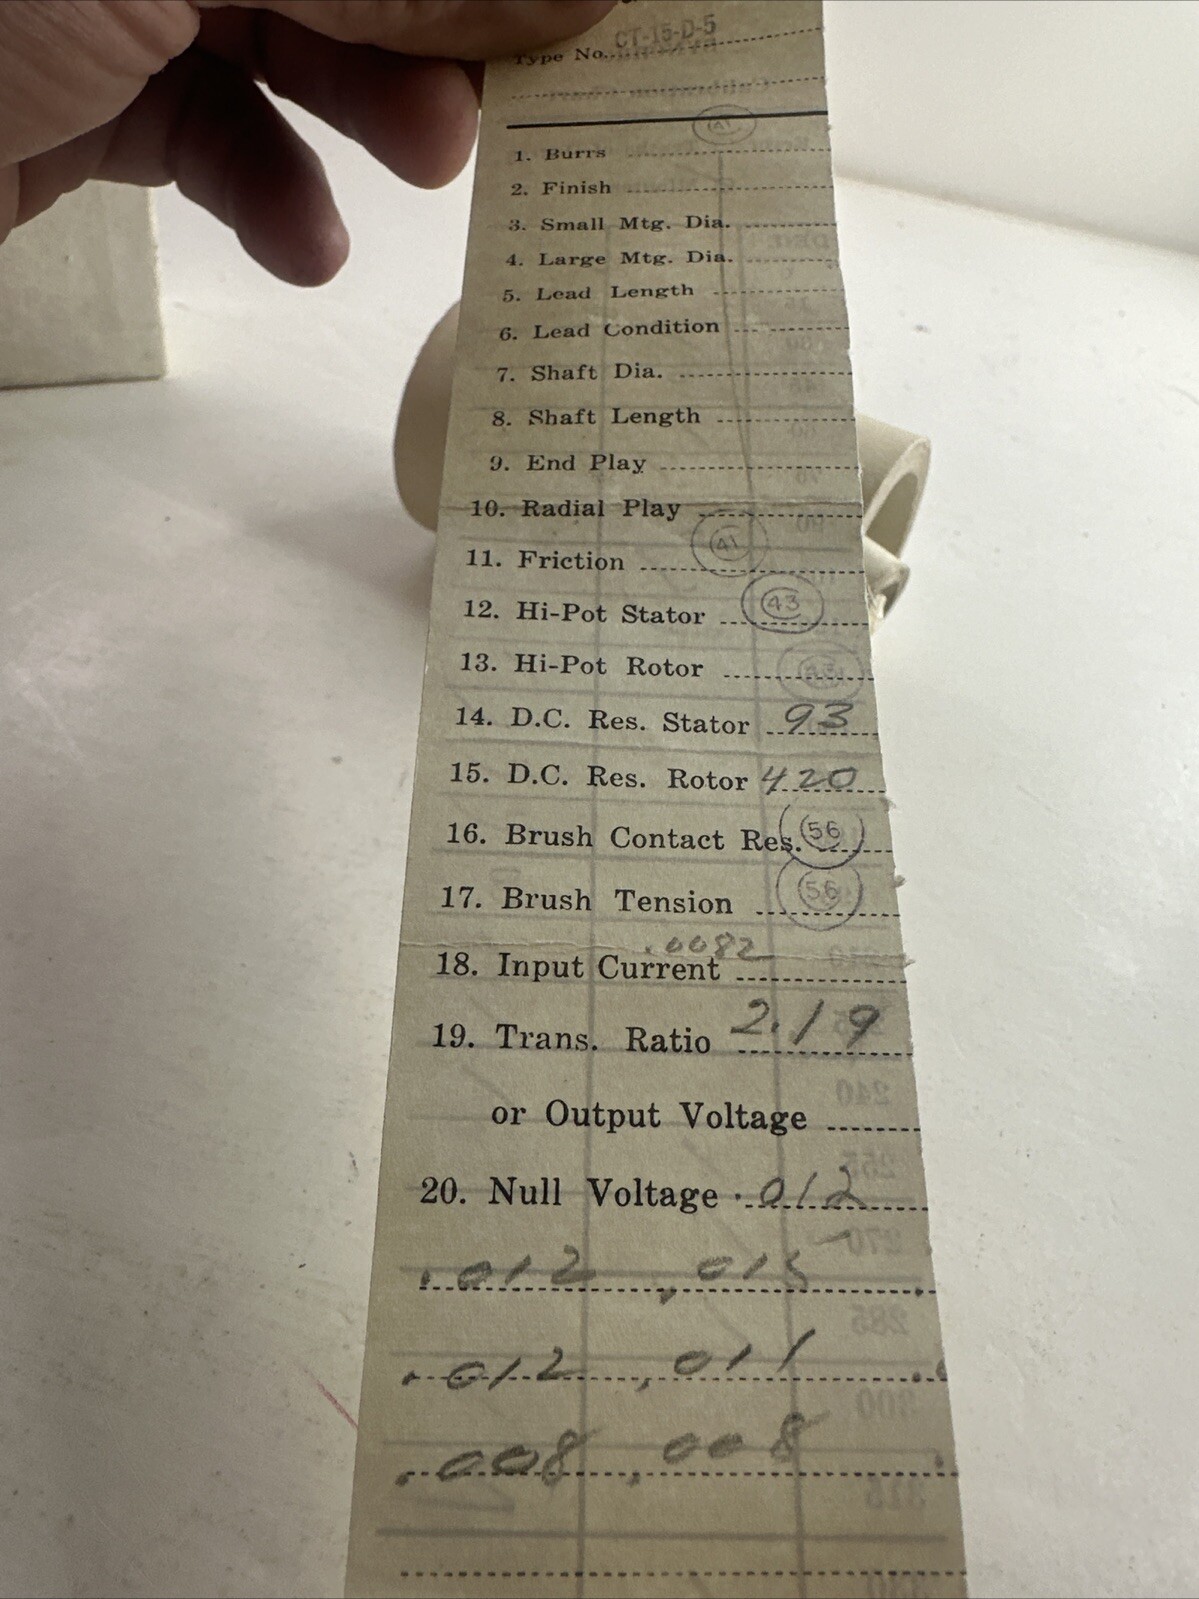 CT-15-D-5
Type No.
1. Burrs
2. Finish
3. Small Mtg. Dia.
4. Large Mtg. Dia.
5. Lead Length
6. Lead Condition
7. Shaft Dia.
8. Shaft Length
9. End Play
10. Radial Play
41
11. Friction
12. Hi-Pot Stator 43
13. Hi-Pot Rotor
14. D.C. Res. Stator 93
15. D.C. Res. Rotor 420
16. Brush Contact Res. 56
17. Brush Tension 56
.0082
18. Input Current
19. Trans. Ratio 2.19
or Output Voltage
20. Null Voltage .012
.012 .015
.012 .011
.008 .008